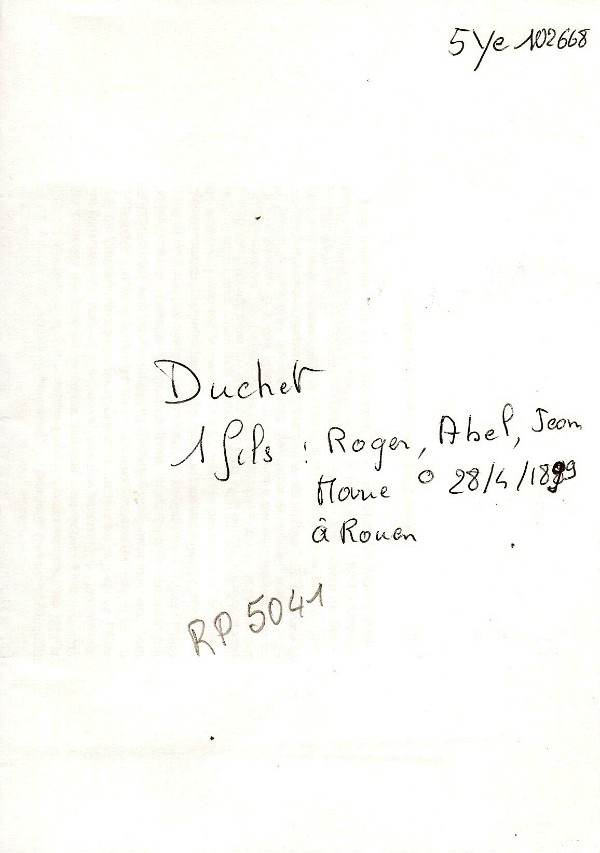 5 Ye 102668
Duchet
1 fils : Roger, Abel, Jean
Marie ° 28/4/1899
à Rouen
RP 5041